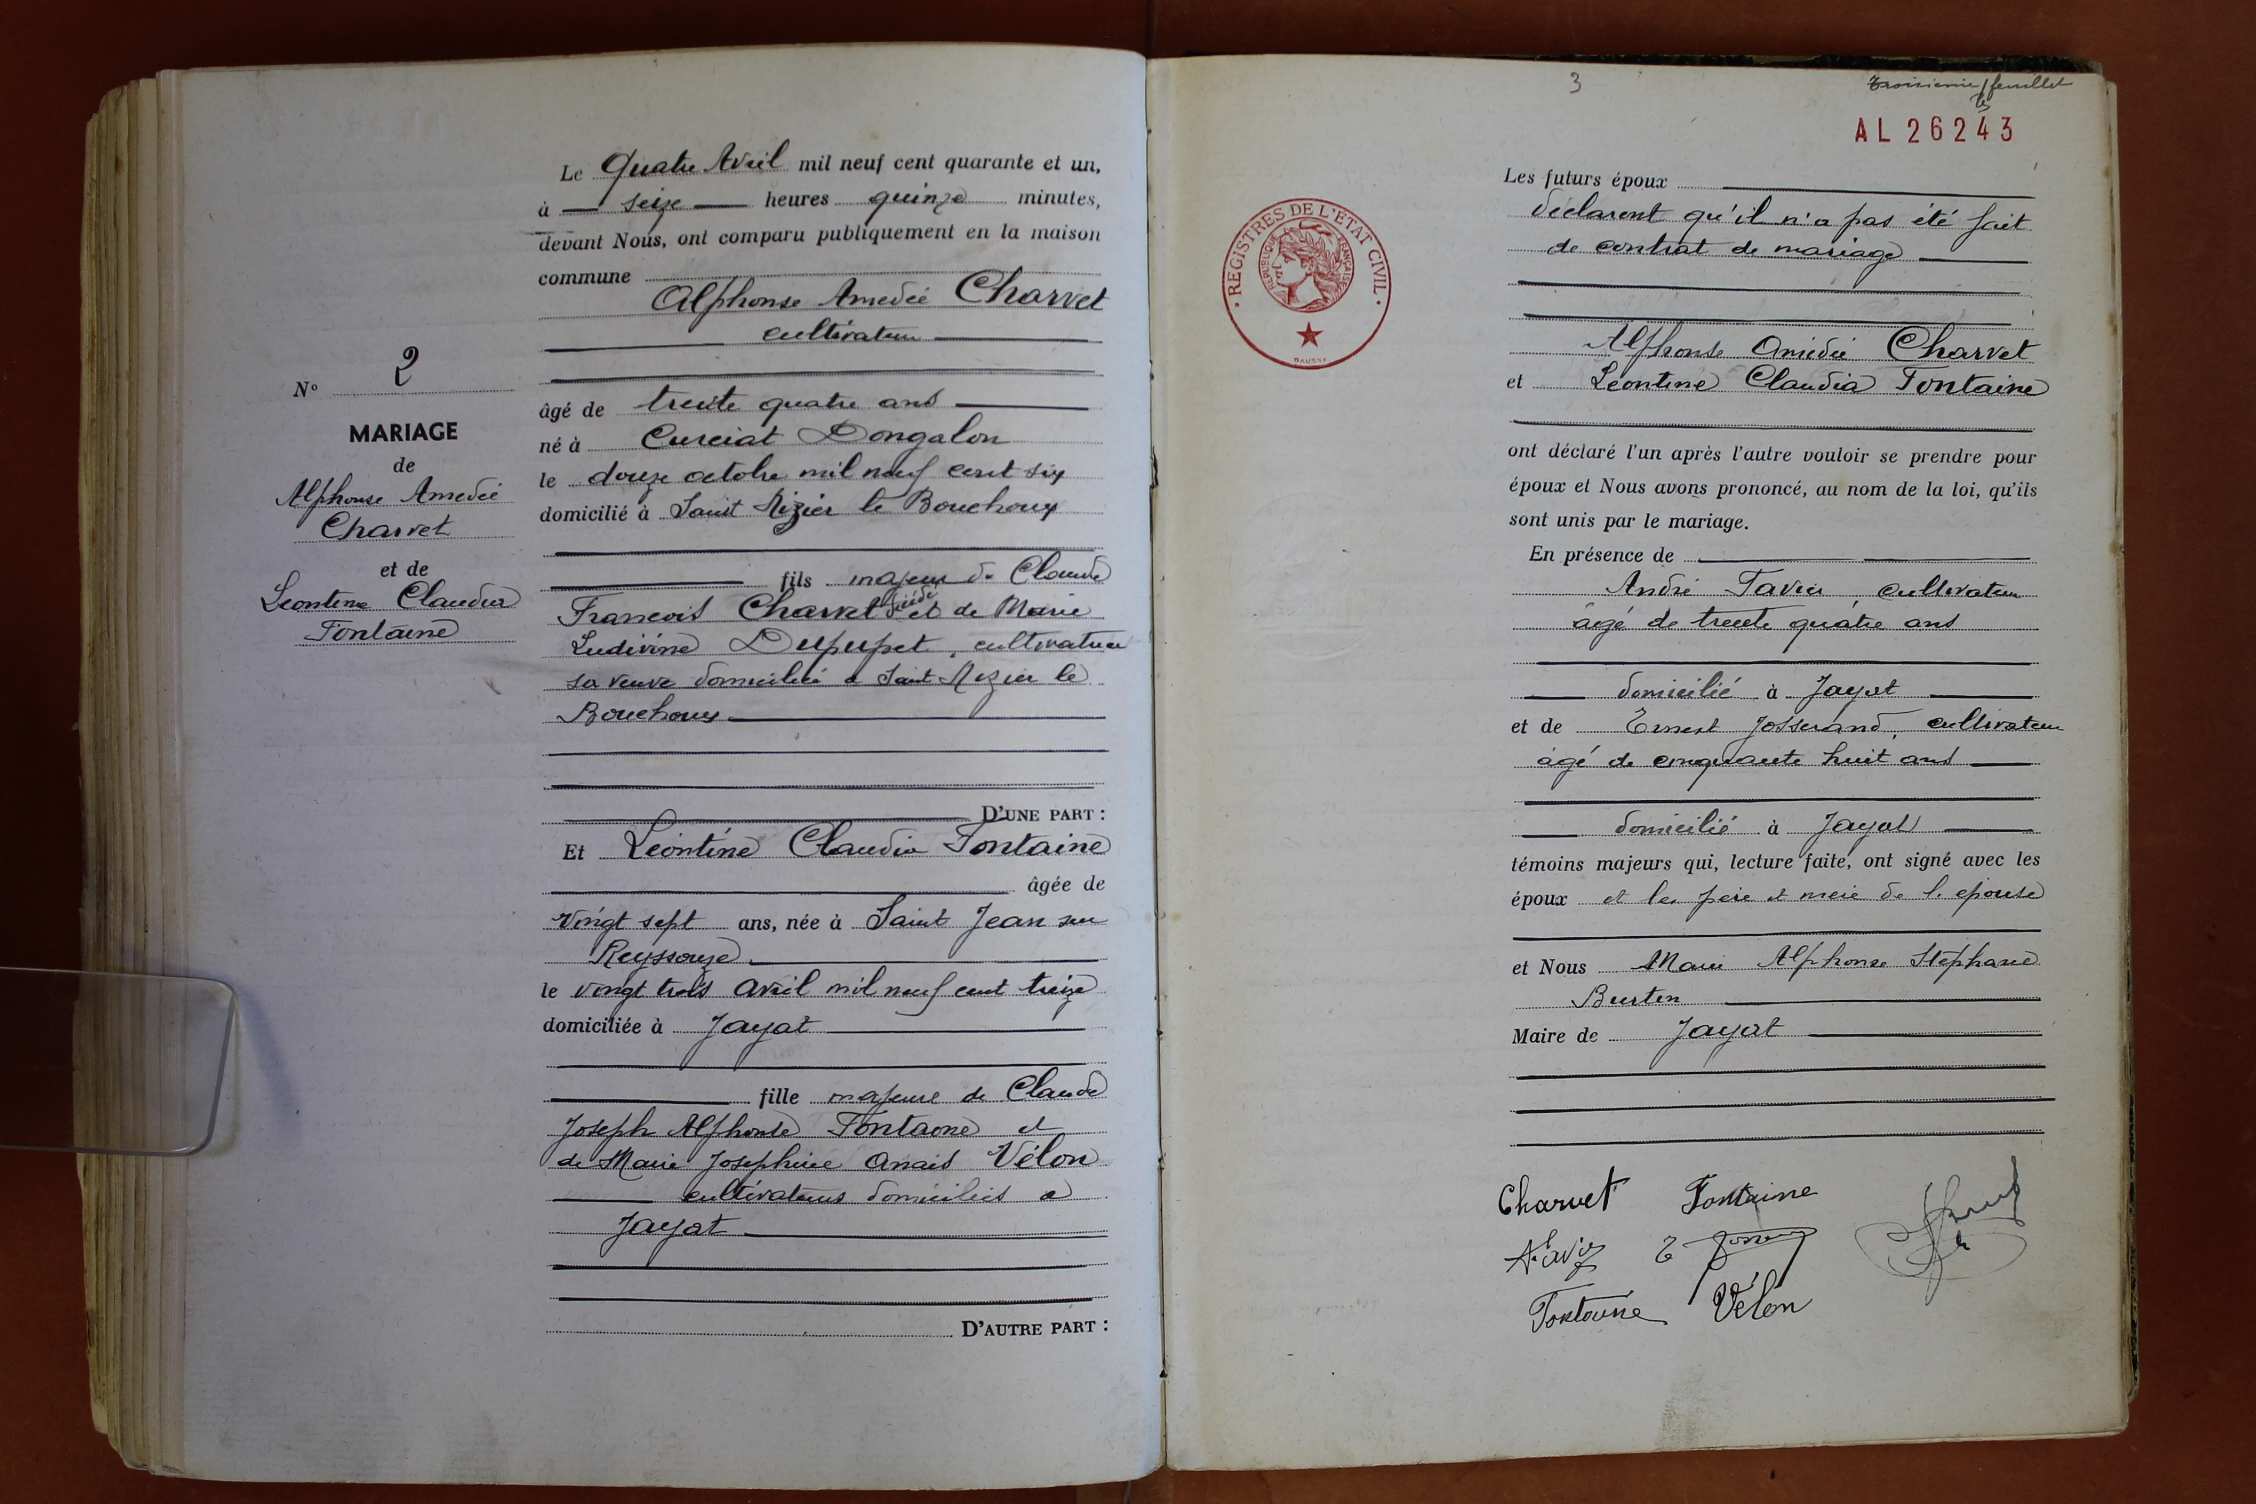 Le Quatre Avril mil neuf cent quarante et un,
à seize heures quinze minutes,
devant Nous, ont comparu publiquement en la maison
commune
Alphonse Amedée Charvet
cultivateur
N° 2
MARIAGE
de
Alphonse Amedée
Charvet
et de
Leontine Claudia
Fontaine
âgé de trente quatre ans
né à Curciat Dongalon
le douze octobre mil neuf cent six
domicilié à Saint Nizier le Bouchoux
fils majeur de Claude
Francois Charvet décédé et de Marie
Ludivine Dupupet, cultivatrice
sa veuve domiciliée à Saint Nizier le
Bouchoux
D'UNE PART :
Et Léontine Claudia Fontaine
âgée de
vingt sept ans, née à Saint Jean sur
Reyssouze
le vingt trois avril mil neuf cent treize
domiciliée à Jayat
fille majeure de Claude
Joseph Alphonse Fontaine et
de Marie Josephine Anais Vélon
cultivateurs domiciliés à
Jayat
D'AUTRE PART :
3
Troisième feuillet
AL 26243
REGISTRES DE L'ÉTAT CIVIL
RÉPUBLIQUE FRANÇAISE
Les futurs époux
déclarent qu'il n'a pas été fait
de contrat de mariage
Alphonse Amédée Charvet
et Léontine Claudia Fontaine
ont déclaré l'un après l'autre vouloir se prendre pour
époux et Nous avons prononcé, au nom de la loi, qu'ils
sont unis par le mariage.
En présence de
André Favier, cultivateur
âgé de trente quatre ans
domicilié à Jayat
et de Ernest Josserand, cultivateur
âgé de cinquante huit ans
domicilié à Jayat
témoins majeurs qui, lecture faite, ont signé avec les
époux et les père et mère de l'épouse
et Nous Marie Alphonse Stéphane
Burtin
Maire de Jayat
Charvet Fontaine
Fontaine Vélon